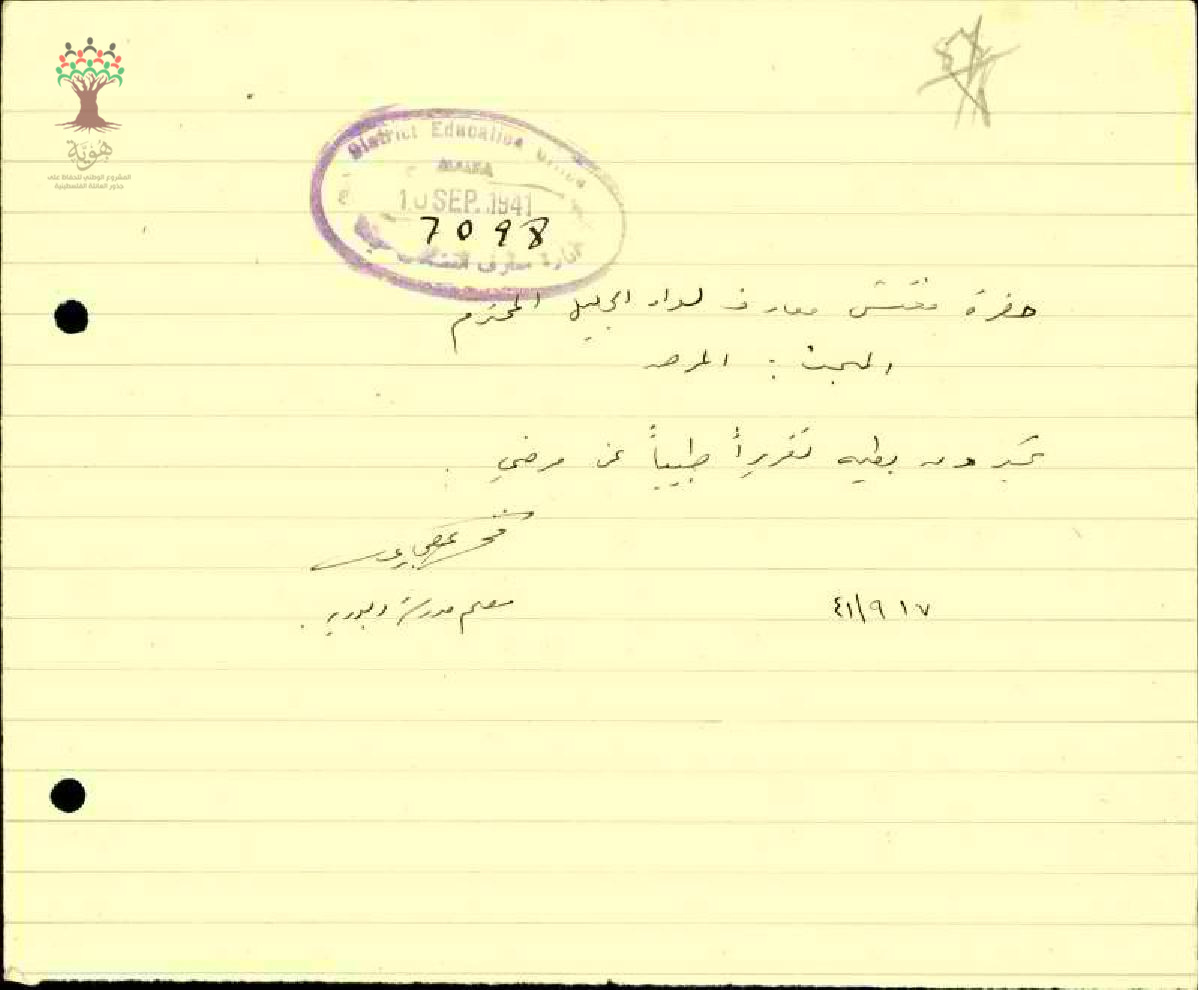 هوية
المشروع الوطني للحفاظ على
جذور العائلة الفلسطينية
District Education Office
HAIFA
SEP. 1941
7098
حضرة مفتش معارف لواء الجليل المحترم
المبحث : المرض
تجدون بطيه تقريراً طبياً عن مرضي .
معلم مدرسة
١٧ ٩/٤١